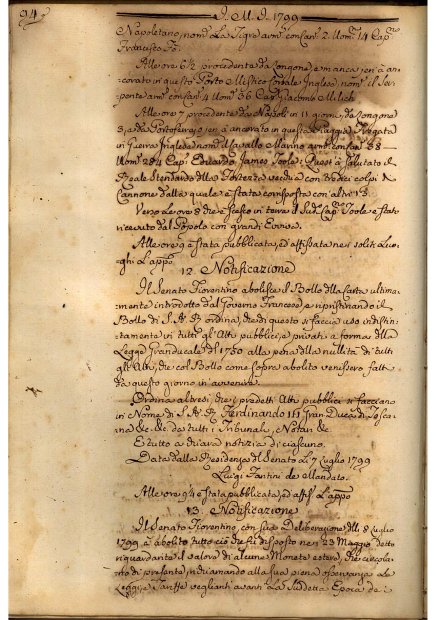 94
I. M. I. 1799
Napoletano, nom.º La Tigre arm.º con san. 2 Uom. 14 Cap.
Francesco
Alle ore 6 1/2 procedente da Longone e manca, en à an-
corato in questo Porto Mistico Corsale Inglese nom.º il Ser-
pente arm. con san. 4 Uom. 36 Cap. Giacomo Milich
Alle ore 7 procedente da Napoli in 11 giorni, da Longone
3, e da Portoferraio en à ancorato in questa Piaggia Fregata
in guerra Inglese nom. Cavallo Marino arm. con san. 38
Uom. 284 Cap. Eduardo James Foole: Questo à salutato il
Reale Stendardo della Fortezza vecchia con Tredici colpi di
Cannone dalla quale è stata corrisposta con altri 13.
Verso le ore 8 di e sceso in terra il Sud. Cap. Foole e stato
ricevuto dal Popolo con grandi Evviva.
Alle ore 9 è stata pubblicata, ed affissata nei soliti Luo-
ghi L'app.
12. Notificazione
Il Senato Fiorentino abolisce il Bollo della Carta ultima-
mente introdotto dal Governo Francese, e ripristinando il
Bollo di S. A. R. ordina, che di questo si faccia uso indistin-
tamente in tutti gl'Atti pubblici, e privati a forma della
Legge Granducale del 1750 alla pena della nullità di tutti
gli Atti, che col Bollo come sopra abolito venissero fatt-
da questo giorno in avvenire.
Ordina altresì, che i predetti Atti pubblici si facciano
in Nome di S. A. R. Ferdinando III Gran Duca di Tosca-
na &c. &c. da tutti i Tribunali, e Notari &c.
E tutto a chiara notizia di ciascuno.
Data dalla Residenza del Senato Li 7 Luglio 1799
Luigi Fantini de Mandato.
Alle ore 9 1/4 è stata pubblicata, ed affis. L'app.
13. Notificazione
Il Senato Fiorentino, con sua Deliberazione delli 8 Luglio
1799 à abolito tutto ciò che fu disposto nei 23 Maggio detto
riguardante il valore di alcune Monete estere, che circola-
no di presente, richiamando alla sua piena osservanza Le
Leggi, e Tariffe veglianti avanti La suddetta Epoca dei